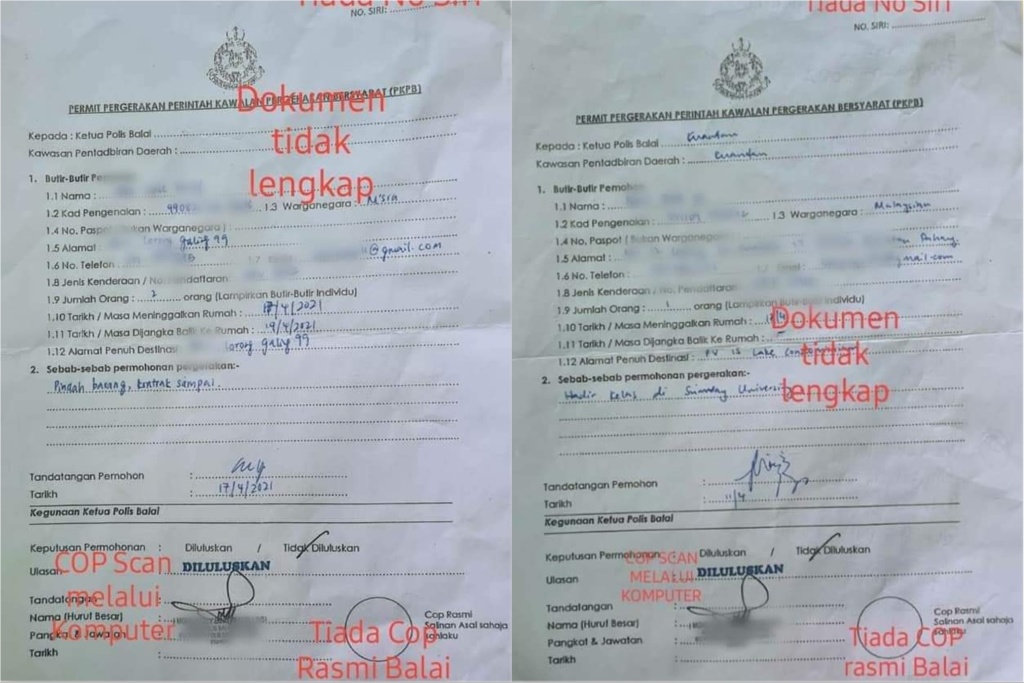 Tiada No Siri
NO. SIRI:
Dokumen
tidak
lengkap
PERMIT PERGERAKAN PERINTAH KAWALAN PERGERAKAN BERSYARAT (PKPB)
Kepada : Ketua Polis Balai
Kawasan Pentadbiran Daerah :
1. Butir-Butir
1.1 Nama :
1.2 Kad Pengenalan : 990 1.3 Warganegara : M'SIA
1.4 No. Paspot Bukan Warganegara) :
1.5 Alamat Lorong galing 99
1.6 No. Telefon @gmail.com
1.8 Jenis Kenderaan / No. Pendaftaran
1.9 Jumlah Orang : 2 orang (Lampirkan Butir-Butir Individu)
1.10 Tarikh / Masa Meninggalkan Rumah : 17/4/2021
1.11 Tarikh / Masa Dijangka Balik Ke Rumah : 19/4/2021
1.12 Alamat Penuh Destinasi Lorong galing 99
2. Sebab-sebab permohonan pergerakan:-
Pindah barang, kontrak sampai
Tandatangan Pemohon :
Tarikh : 17/4/2021
Kegunaan Ketua Polis Balai
Keputusan Permohonan : Diluluskan / Tidak Diluluskan
Ulasan DILULUSKAN
COP Scan
melalui
Komputer
Tandatangan
Nama (Huruf Besar)
Pangkat & Jawatan
Tarikh :
Cop Rasmi
Salinan Asal sahaja
sahlaku
Tiada Cop
Rasmi Balai
Tiada No Siri
NO. SIRI:
PERMIT PERGERAKAN PERINTAH KAWALAN PERGERAKAN BERSYARAT (PKPB)
Kepada : Ketua Polis Balai Kuantan
Kawasan Pentadbiran Daerah : Kuantan
1. Butir-Butir Pemohon
1.1 Nama :
1.2 Kad Pengenalan : 1.3 Warganegara : Malaysian
1.4 No. Paspot ( Bukan Warganegara
1.5 Alamat : Pahang
1.6 No. Telefon : mail.com
1.8 Jenis Kenderaan / No. Pendaftaran
1.9 Jumlah Orang : 1 orang (Lampirkan Butir-Butir Individu)
1.10 Tarikh / Masa Meninggalkan Rumah :
1.11 Tarikh / Masa Dijangka Balik Ke Rumah :
1.12 Alamat Penuh Destinasi : PV 15 Lake
Dokumen
tidak
lengkap
2. Sebab-sebab permohonan pergerakan:-
Hadir kelas di Sunway University
Tandatangan Pemohon :
Tarikh : 11/4
Kegunaan Ketua Polis Balai
Keputusan Permohonan: Diluluskan / Tidak Diluluskan
Ulasan DILULUSKAN
COP SCAN
MELALUI
KOMPUTER
Tandatangan :
Nama (Huruf Besar) :
Pangkat & Jawatan :
Tarikh :
Cop Rasmi
Salinan Asal sahaja
sahlaku
Tiada COP
rasmi Balai